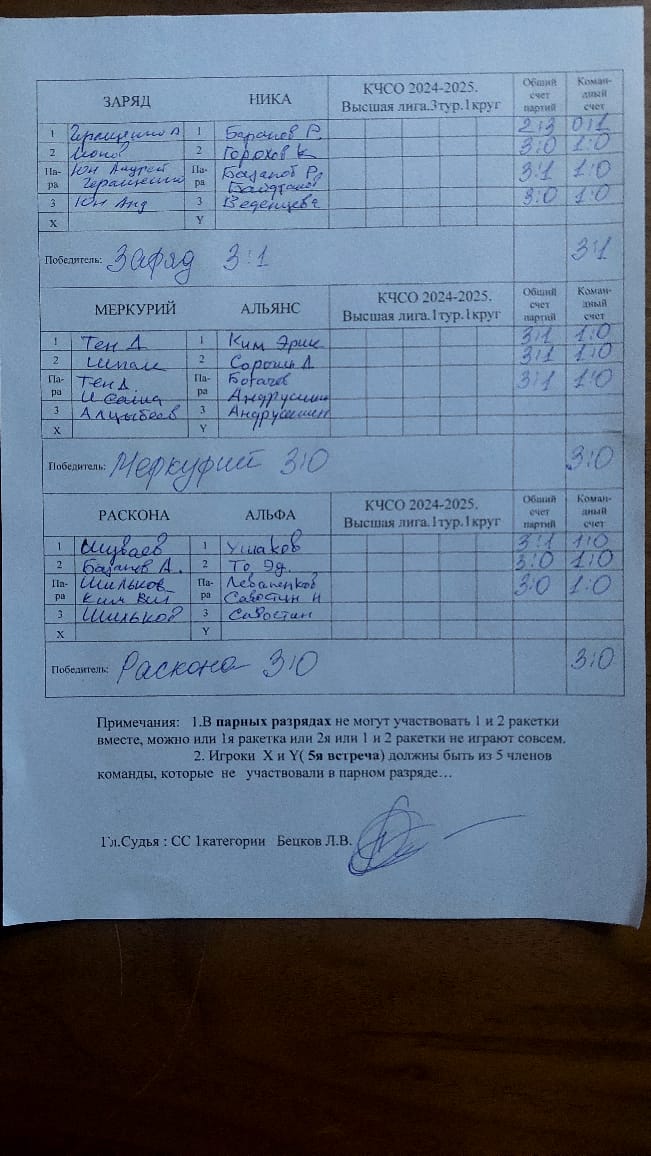 ЗАРЯД НИКА КЧСО 2024-2025. Высшая лига.3тур.1круг Общий счет партий Коман-дный счет
1 Геращенко А 1 Баранов Р. 2:3 0:1
2 2 Горохов К 3:0 1:0
Па-ра Юн Андрей Геращенко Па-ра Р. 3:1 1:0
3 Юн Анд 3 Веденцева 3:0 1:0
X Y
Победитель: Заряд 3:1 3:1
МЕРКУРИЙ АЛЬЯНС КЧСО 2024-2025. Высшая лига.1тур.1круг Общий счет партий Коман-дный счет
1 Тен Д 1 Ким Эрик 3:1 1:0
2 2 3:1 1:0
Па-ра Тен Д. Па-ра Богачев 3:1 1:0
3 Алцыбеев 3
X Y
Победитель: Меркурий 3:0 3:0
РАСКОНА АЛЬФА КЧСО 2024-2025. Высшая лига.1тур.1круг Общий счет партий Коман-дный счет
1 Шуваев 1 Ушаков 3:1 1:0
2 2 То Эд. 3:0 1:0
Па-ра Шильков Ким Вил Па-ра Савостин Н 3:0 1:0
3 Шильков 3 Савостин
X Y
Победитель: Раскона 3:0 3:0
Примечания: 1.В парных разрядах не могут участвовать 1 и 2 ракетки
вместе, можно или 1я ракетка или 2я или 1 и 2 ракетки не играют совсем.
2. Игроки X и Y( 5я встреча) должны быть из 5 членов
команды, которые не участвовали в парном разряде…
Гл.Судья : СС 1категории Бецков Л.В.